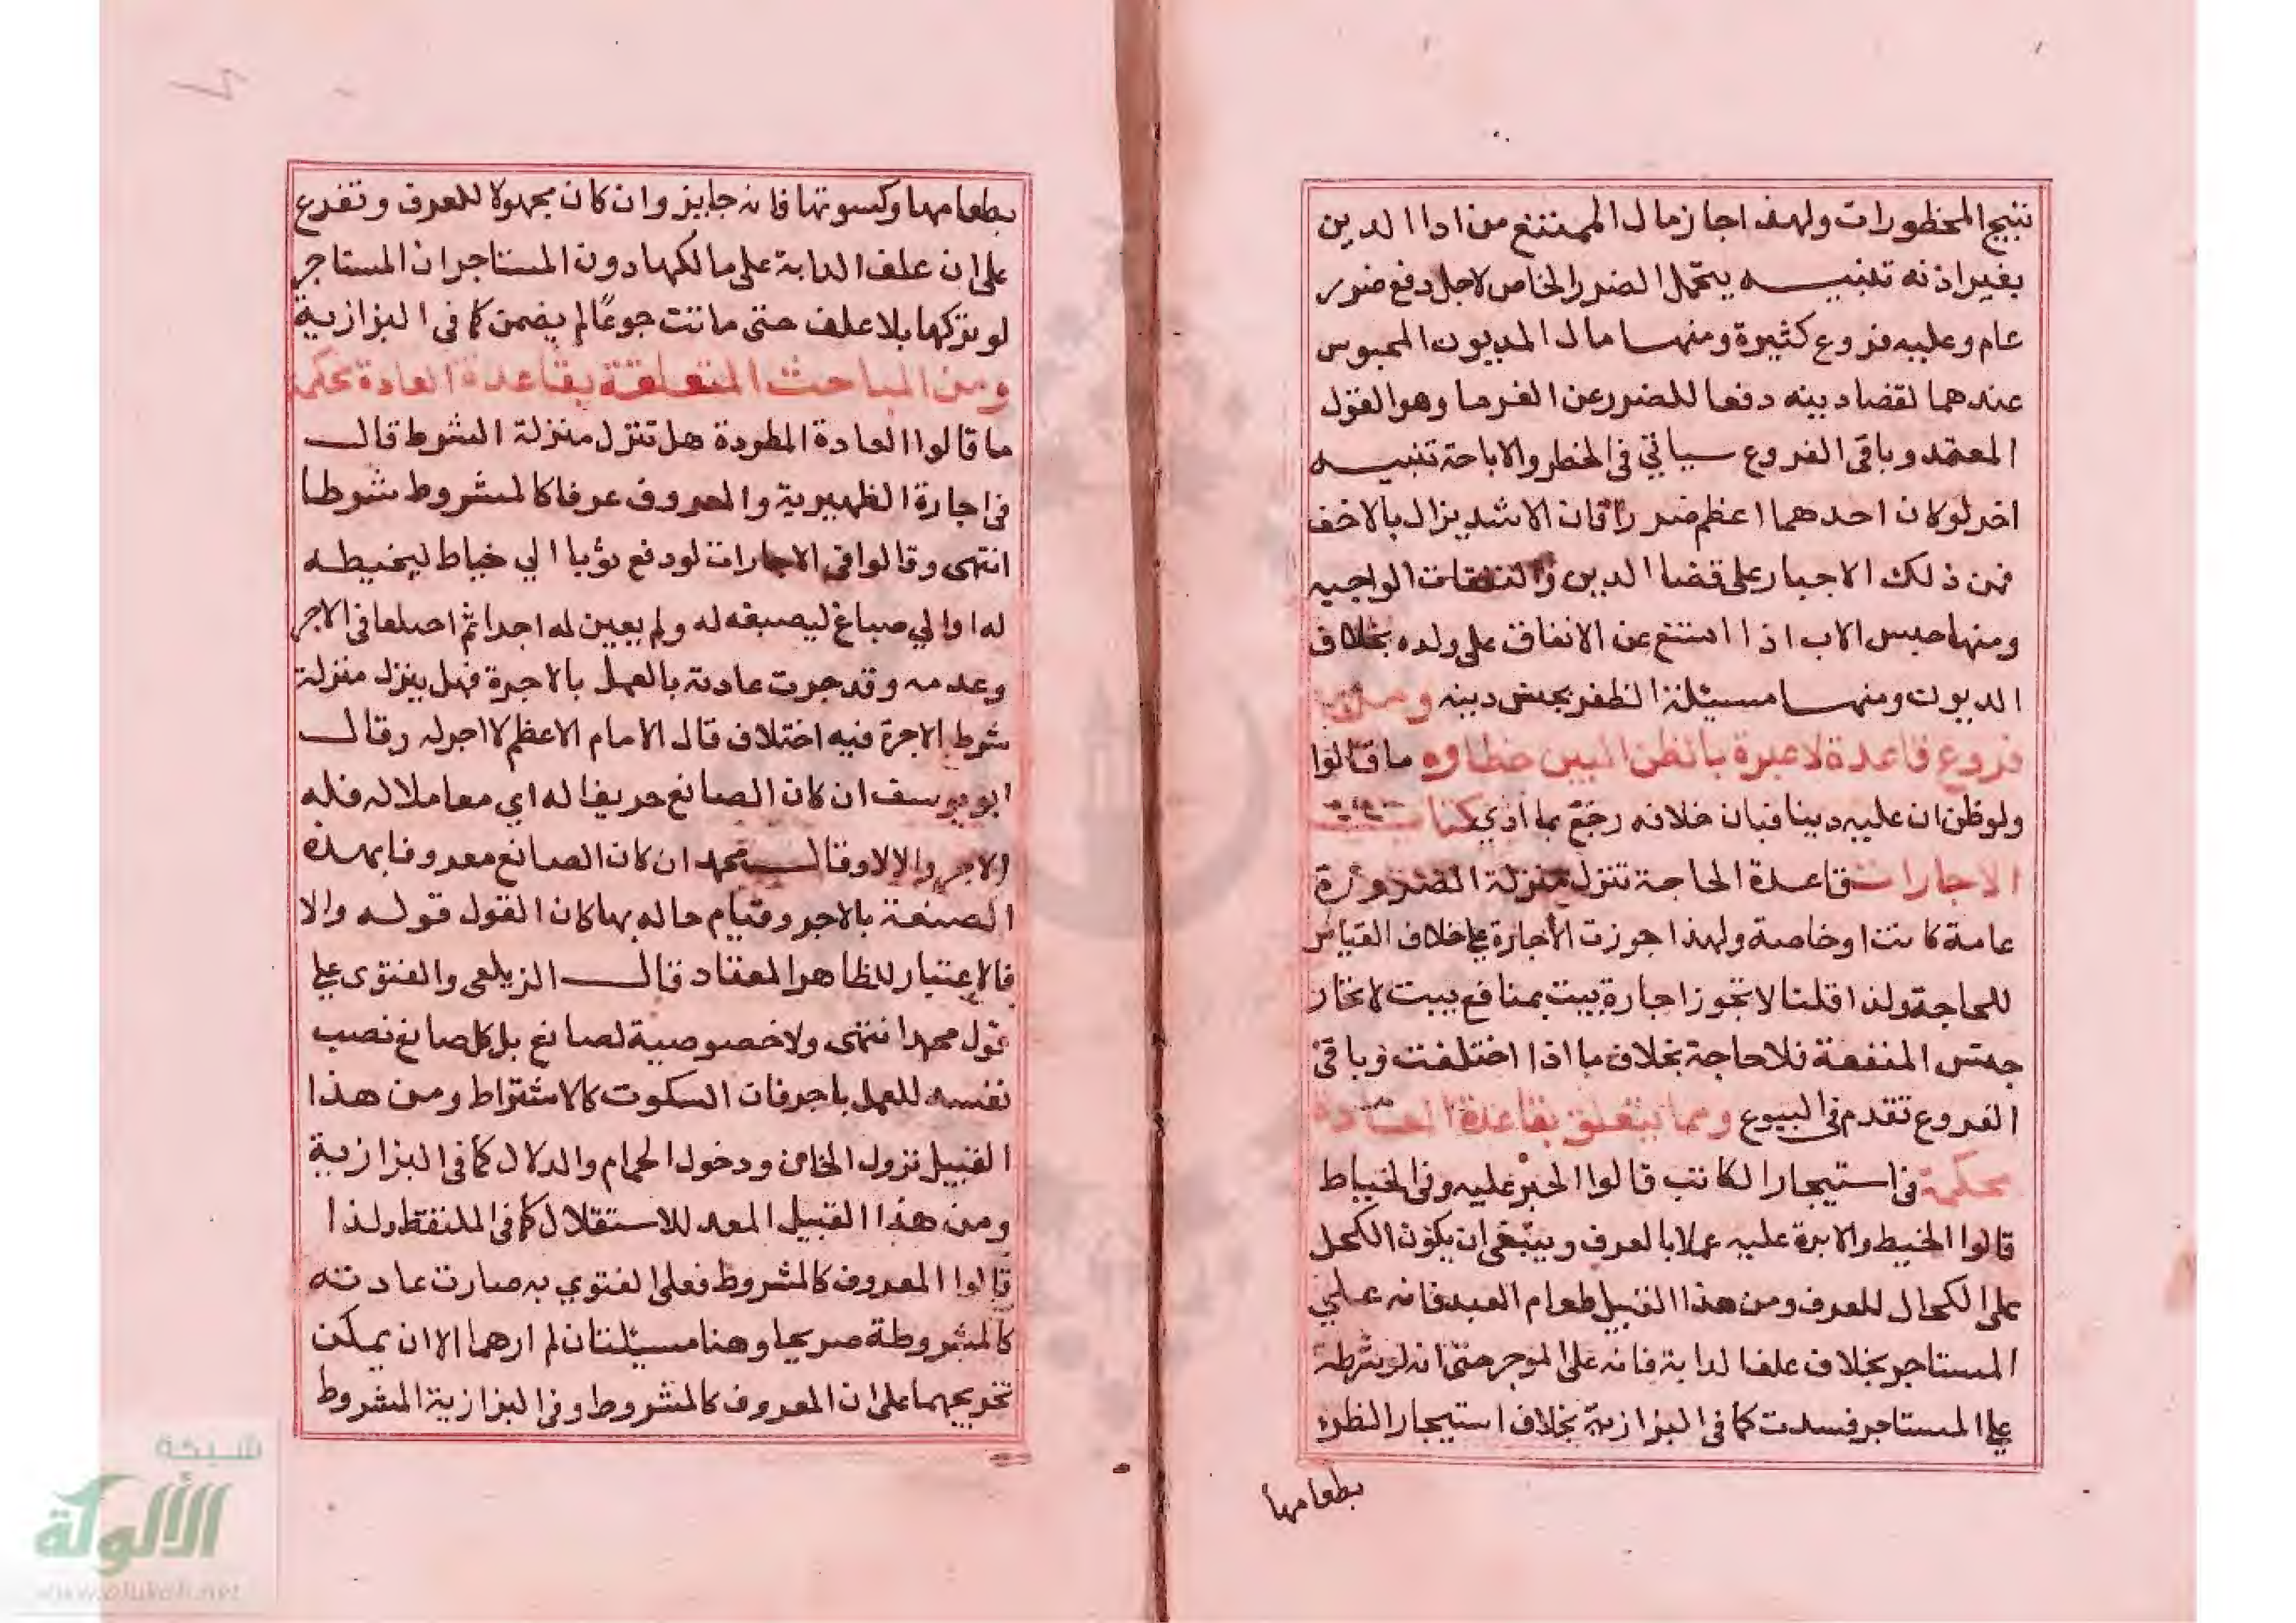 تبيح المحظورات ولهذا جاز مال الممتنع من ادا الدين
بغير اذنه تنبيه يتحمل الضرر الخاص لاجل دفع ضرر
عام وعليه فروع كثيرة ومنها مال المديون المحبوس
عندهما لقضا دينه دفعا للضرر عن الغرما وهو القول
المعتمد وباقى الفروع سياتي فى الحظر والاباحة تنبيه
اخر لو كان احدهما اعظم ضررا فان الاشد يزال بالاخف
فمن ذلك الاجبار على قضا الدين والنفقات الواجبه
ومنها حبس الاب اذا امتنع عن الانفاق على ولده بخلاف
الديون ومنها مسئلة الظفر بجنس دينه ومن
فروع قاعدة لا عبرة بالظن البين خطاوه ما قالوا
ولو ظن ان عليه دينا فبان خلافه رجع بما ادي كتاب
الاجارات قاعدة الحاجة تنزل منزلة الضرورة
عامة كانت او خاصة ولهذا جوزت الاجارة على خلاف القياس
للحاجة ولذا قلنا لا تجوز اجارة بيت بمنافع بيت لاتحاد
جنس المنفعة فلا حاجة بخلاف ما اذا اختلفت وباقى
الفروع تقدم فى البيوع ومما يتعلق بقاعدة العادة
محكمة فى استيجار الكاتب قالوا الحبر عليه وفى الخياط
قالوا الخيط والابرة عليه عملا بالعرف وينبغى ان يكون الكحل
على الكحال للعرف ومن هذا القبيل طعام العبد فانه علي
المستاجر بخلاف علف الدابة فانه على الموجر حتى انه لو شرطه
على المستاجر فسدت كما فى البزازية بخلاف استيجار الظئر
بطعامها
بطعامها وكسوتها فانه جايز وان كان مجهولا للعرف وتفرع
على ان علف الدابة على مالكها دون المستاجر ان المستاجر
لو تركها بلا علف حتى ماتت جوعًا لم يضمن كما فى البزازية
ومن المباحث المتعلقة بقاعدة العادة محكمة
ما قالوا العادة المطردة هل تنزل منزلة الشرط قال
فى اجارة الظهيرية والمعروف عرفا كالمشروط شرطا
انتهى وقالوا فى الاجارات لو دفع ثوبا الي خياط ليخيطه
له او الي صباغ ليصبغه له ولم يعين له اجرا ثم اختلفا فى الاجر
وعدمه وقد جرت عادته بالعمل بالاجرة فهل ينزل منزلة
شرط الاجرة فيه اختلاف قال الامام الاعظم لا اجر له وقال
ابو يوسف ان كان الصانع حريفا له اي معاملا له فله
الاجر والا لا وقال محمد ان كان الصانع معروفا بهذه
الصنعة بالاجر وقيام حاله بها كان القول قوله والا
فالاعتبار للظاهر المعتاد قال الزيلعى والفتوى على
قول محمد انتهى ولا خصوصية لصانع بل كل صانع نصب
نفسه للعمل باجر فان السكوت كالاشتراط ومن هذا
القبيل نزول الخان ودخول الحمام والدلال كما فى البزازية
ومن هذا القبيل المعد للاستقلال كما فى الملتقط ولذا
قالوا المعروف كالمشروط فعلى الفتوي به صارت عادته
كالمشروطة صريحا وهنا مسئلتان لم ارهما الا ان يمكن
تخريجهما على ان المعروف كالمشروط وفى البزازية المشروط
شبكة
الألوكة
www.alukah.net